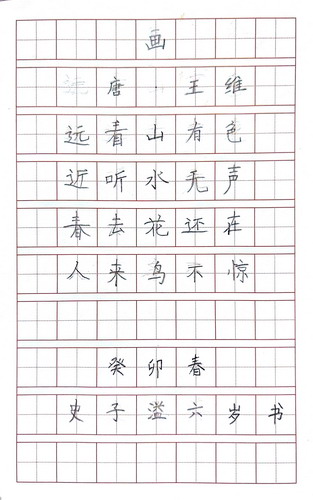 画
唐 王维
远看山有色
近听水无声
春去花还在
人来鸟不惊
癸卯春
史子溢六岁书